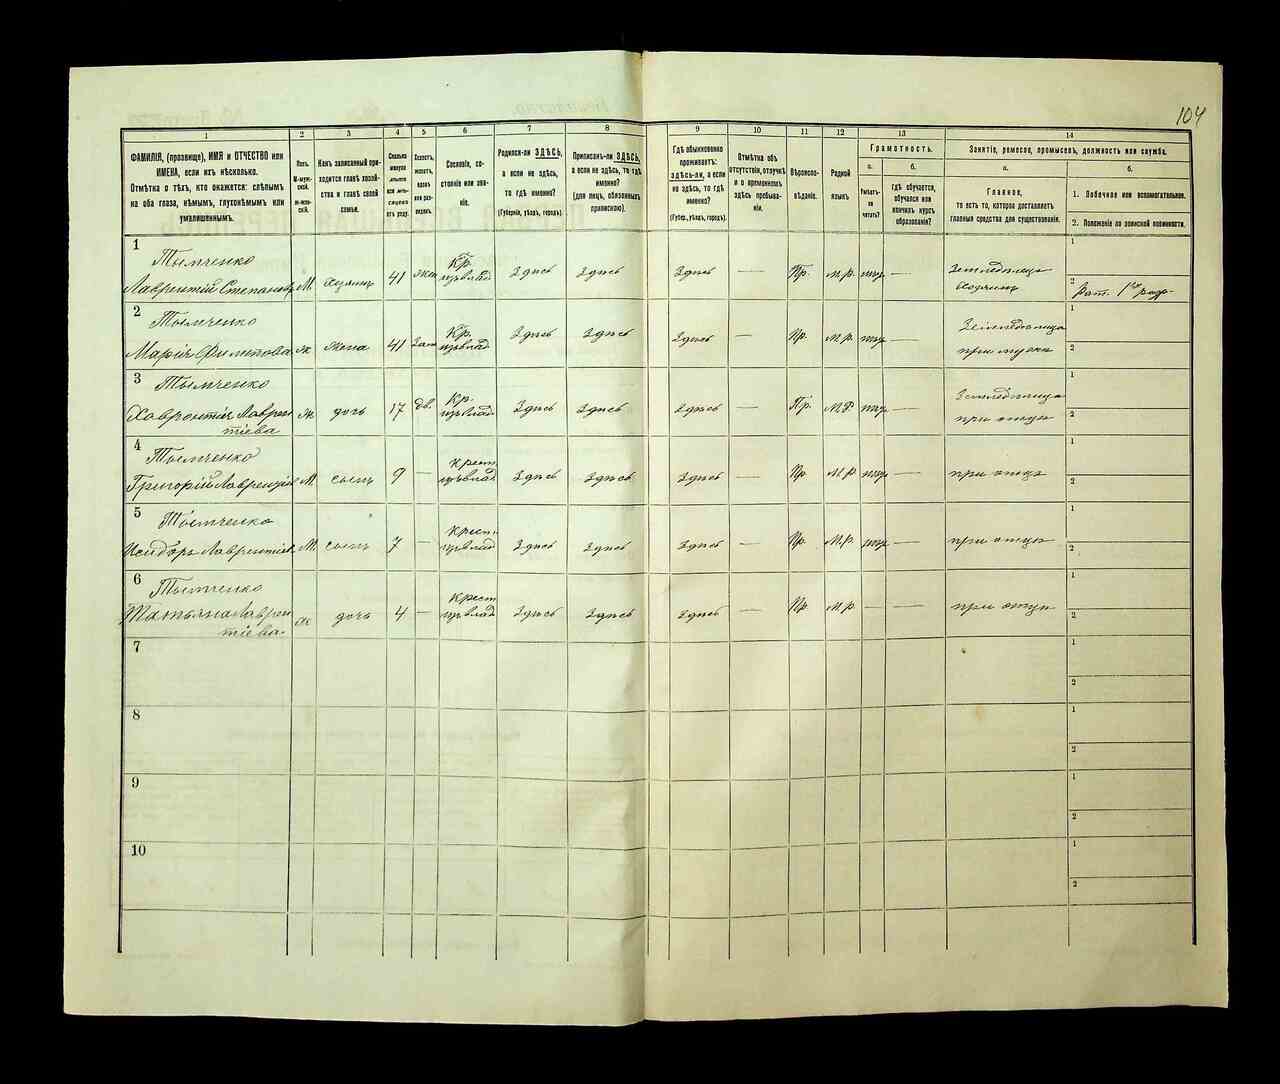 104
1
2
3
4
5
6
7
8
9
10
11
12
13
14
ФАМИЛІЯ, (прозвище), ИМЯ и ОТЧЕСТВО или
ИМЕНА, если ихъ нѣсколько.
Отмѣтка о тѣхъ, кто окажется: слѣпымъ
на оба глаза, нѣмымъ, глухонѣмымъ или
умалишеннымъ.
Полъ.
М-муж-
ской.
Ж-жен-
скій.
Какъ записанный при-
ходится главѣ хозяй-
ства и главѣ своей
семьи.
Сколько
Сословіе, со-
стояніе или зва-
ніе.
Родился-ли ЗДѢСЬ,
а если не здѣсь,
то гдѣ именно?
(Губернія, уѣздъ, городъ).
Приписанъ-ли ЗДѢСЬ,
а если не здѣсь, то гдѣ
именно?
(для лицъ, обязанныхъ
припискою).
Гдѣ обыкновенно
проживаетъ:
ЗДѢСЬ-ли, а если
не здѣсь, то гдѣ
именно?
(Губер., уѣздъ, городъ).
Отмѣтка объ
отсутствіи, отлучкѣ
и о временномъ
здѣсь пребыва-
ніи.
Вѣроиспо-
вѣданіе.
Родной
языкъ.
Грамотность.
а.
Умѣетъ-
ли чи-
тать?
б.
гдѣ обучается,
обучался или
кончилъ курсъ
образованія?
Занятіе, ремесло, промыселъ, должность или служба.
а.
Главное,
то есть то, которое доставляетъ
главныя средства для существованія.
б.
1. Побочное или вспомогательное.
2. Положеніе по воинской повинности.
1
Тымченко
Лаврентій Степановъ М. Хозяинъ 41 жен Кр. изъ влад Здѣсь Здѣсь Здѣсь — Пр. м.р. нѣтъ — Земледѣлецъ
Хозяинъ
1
2 Рат. 1го разр.
2
Тымченко
Марія Филипова ж жена 41 Зам Кр. изъ влад Здѣсь Здѣсь Здѣсь — Пр. м.р. нѣтъ — Земледѣлица
при мужѣ
1
2
3
Тымченко
Хавронтія Лаврен
тіева ж. дочь 17 дв. Кр. изъ влад Здѣсь Здѣсь Здѣсь — Пр. м.р. нѣтъ — Земледѣлица
при отцѣ
1
2
4
Тымченко
Григорій Лаврентіев М сынъ 9 — Крест изъ влад Здѣсь Здѣсь Здѣсь — Пр м.р. нѣтъ — при отцѣ
1
2
5
Тымченко
Исидоръ Лаврентіев М. сынъ 7 — Крест. изъ влад Здѣсь Здѣсь Здѣсь — Пр. м.р. нѣтъ — при отцѣ
1
2
6
Тымченко
Татьяна Лаврен
тіева ж дочь 4 — Крест изъ влад Здѣсь Здѣсь Здѣсь — Пр м.р. — — при отцѣ
1
2
7
1
2
8
1
2
9
1
2
10
1
2